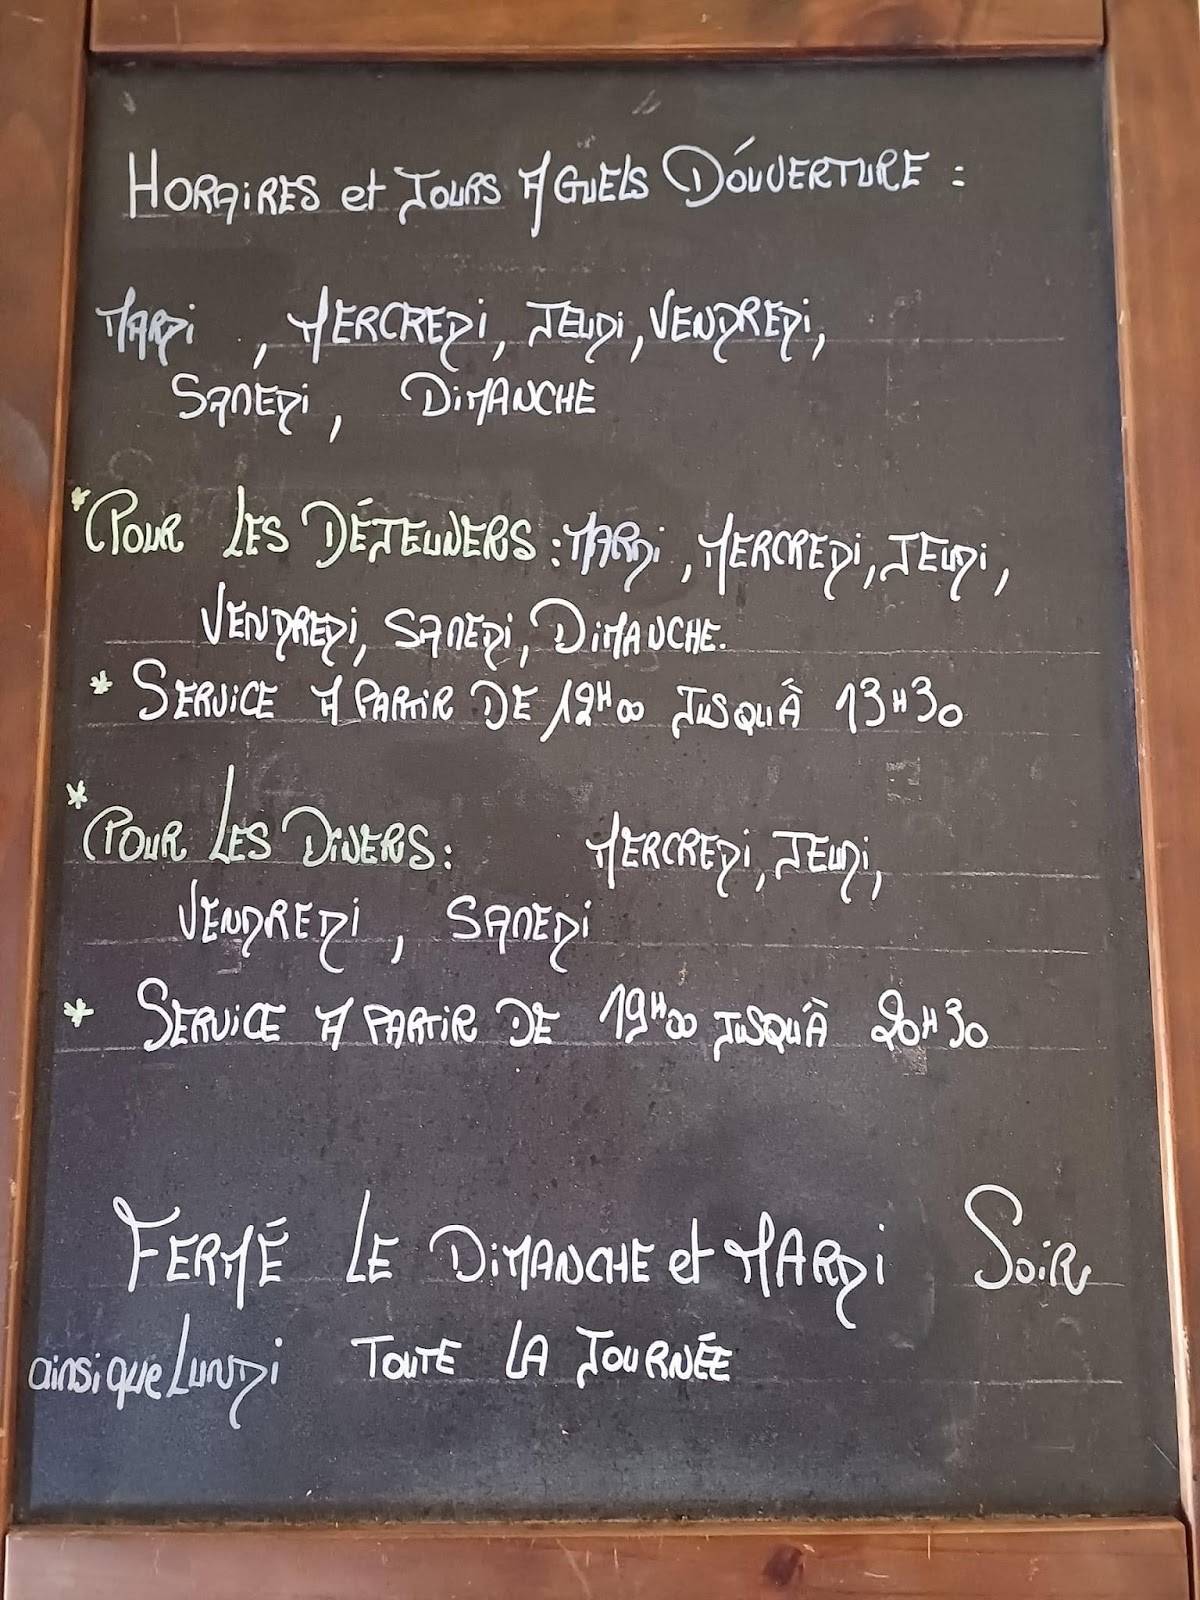 HORAIRES et JOURS AGUELS D'OUVERTURE :
MARDI , MERCREDI, JEUDI, VENDREDI,
SAMEDI, DIMANCHE
* POUR LES DÉJEUNERS : MARDI , MERCREDI, JEUDI,
VENDREDI, SAMEDI, DIMANCHE.
* SERVICE A PARTIR DE 12H00 JUSQU'À 13H30
* POUR LES DINERS : MERCREDI, JEUDI,
VENDREDI , SAMEDI
* SERVICE A PARTIR DE 19H00 JUSQU'À 20H30
FERMÉ LE DIMANCHE et MARDI SOIR
ainsi que LUNDI TOUTE LA JOURNÉE